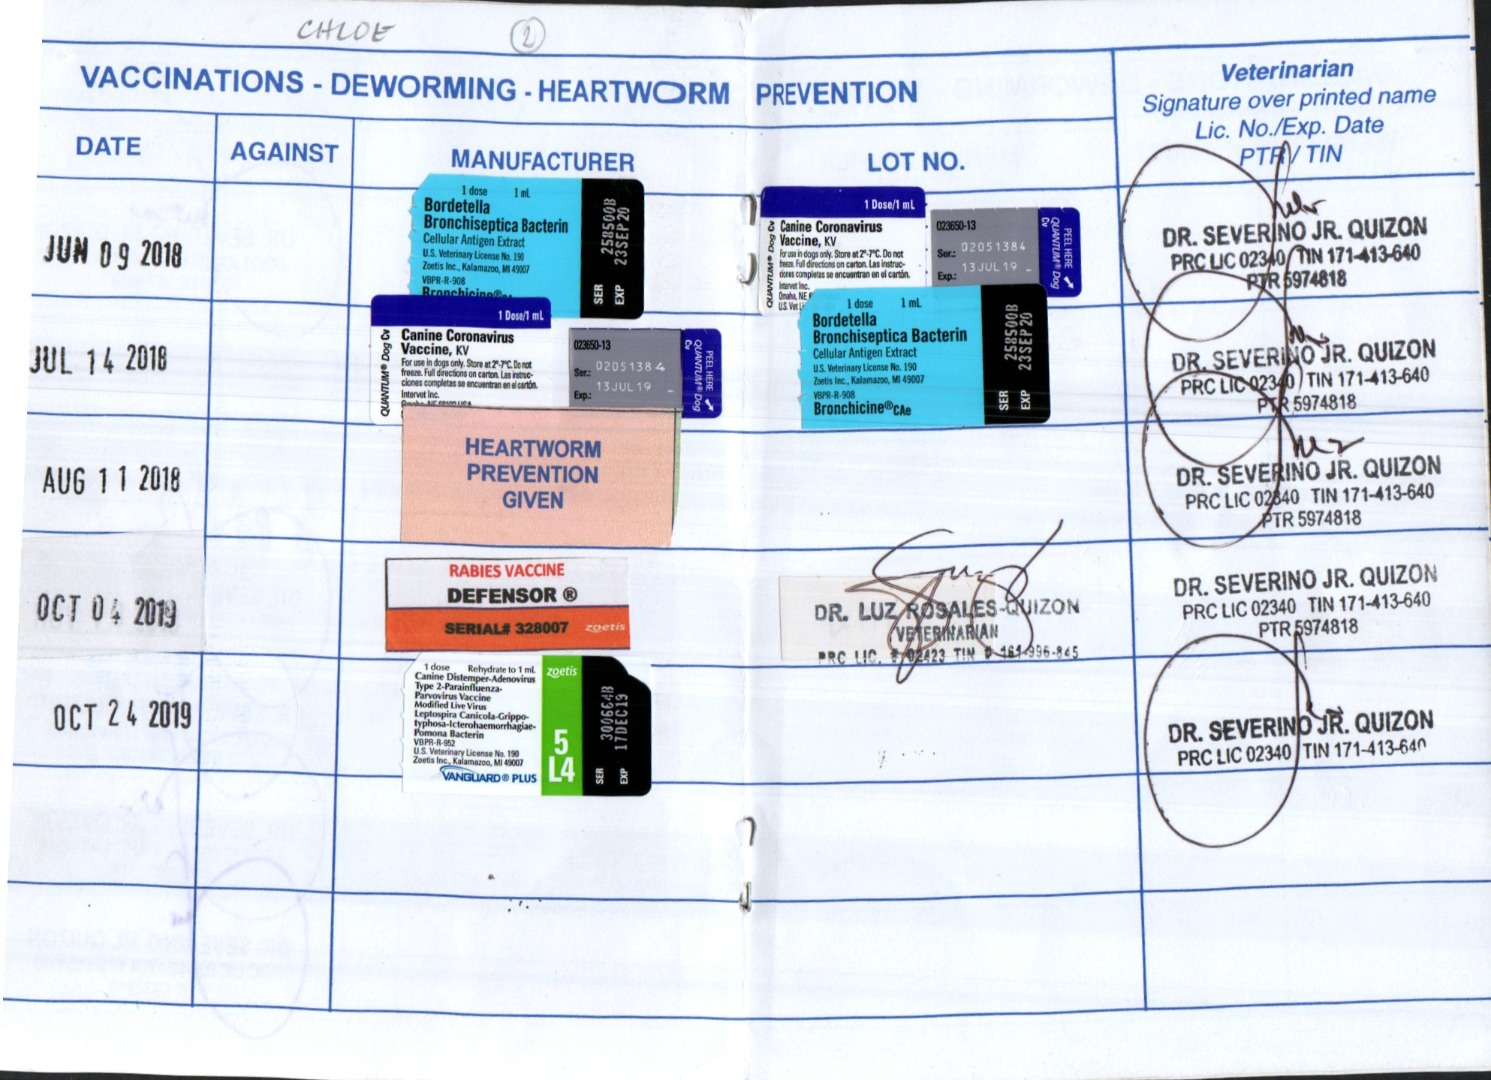 CHLOE 2
VACCINATIONS - DEWORMING - HEARTWORM PREVENTION
DATE
AGAINST
MANUFACTURER
LOT NO.
Veterinarian
Signature over printed name
Lic. No./Exp. Date
PTR / TIN
JUN 09 2018
1 dose 1 mL
Bordetella
Bronchiseptica Bacterin
Cellular Antigen Extract
U.S. Veterinary License No. 190
Zoetis Inc., Kalamazoo, MI 49007
VBPR-R-908
Bronchicine®
SER 258500B
EXP 23SEP20
1 Dose/1 mL
QUANTUM® Dog Cv
Canine Coronavirus
Vaccine, KV
For use in dogs only. Store at 2°-7°C. Do not
freeze. Full directions on carton. Las instruc-
ciones completas se encuentran en el cartón.
Intervet Inc.
Omaha, NE
U.S. Vet Li
023650-13
Ser.: 02051384
Exp.: 13JUL19
PEEL HERE
QUANTUM® Dog
Cv
DR. SEVERINO JR. QUIZON
PRC LIC 02340 TIN 171-413-640
PTR 5974818
JUL 14 2018
1 Dose/1 mL
QUANTUM® Dog Cv
Canine Coronavirus
Vaccine, KV
For use in dogs only. Store at 2°-7°C. Do not
freeze. Full directions on carton. Las instruc-
ciones completas se encuentran en el cartón.
Intervet Inc.
Omaha, NE 68103 USA
023650-13
Ser.: 02051384
Exp.: 13JUL19
PEEL HERE
QUANTUM® Dog
Cv
1 dose 1 mL
Bordetella
Bronchiseptica Bacterin
Cellular Antigen Extract
U.S. Veterinary License No. 190
Zoetis Inc., Kalamazoo, MI 49007
VBPR-R-908
Bronchicine®CAe
SER 258500B
EXP 23SEP20
DR. SEVERINO JR. QUIZON
PRC LIC 02340 TIN 171-413-640
PTR 5974818
AUG 11 2018
HEARTWORM
PREVENTION
GIVEN
DR. SEVERINO JR. QUIZON
PRC LIC 02340 TIN 171-413-640
PTR 5974818
OCT 04 2019
RABIES VACCINE
DEFENSOR ®
SERIAL# 328007 zoetis
DR. LUZ ROSALES-QUIZON
VETERINARIAN
PRC LIC. # 02423 TIN # 161-996-845
DR. SEVERINO JR. QUIZON
PRC LIC 02340 TIN 171-413-640
PTR 5974818
OCT 24 2019
1 dose Rehydrate to 1 mL
Canine Distemper-Adenovirus
Type 2-Parainfluenza-
Parvovirus Vaccine
Modified Live Virus
Leptospira Canicola-Grippo-
typhosa-Icterohaemorrhagiae-
Pomona Bacterin
VBPR-R-952
U.S. Veterinary License No. 190
Zoetis Inc., Kalamazoo, MI 49007
VANGUARD® PLUS
zoetis
5
L4
SER 300664B
EXP 17DEC19
DR. SEVERINO JR. QUIZON
PRC LIC 02340 TIN 171-413-640